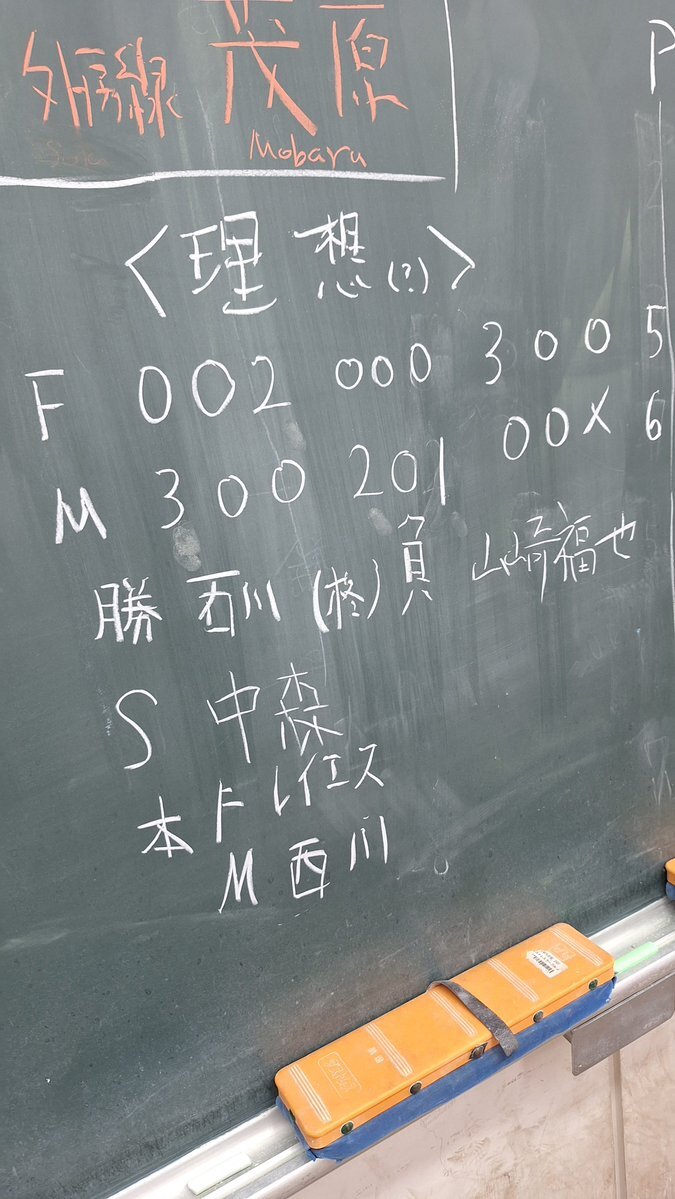 外房線 茂原
Mobaru
P
<理想(?)>
F 002 000 300 5
M 300 201 00X 6
勝 西川(柊) 負 山崎福也
S 中森
本 F レイエス
M 西川